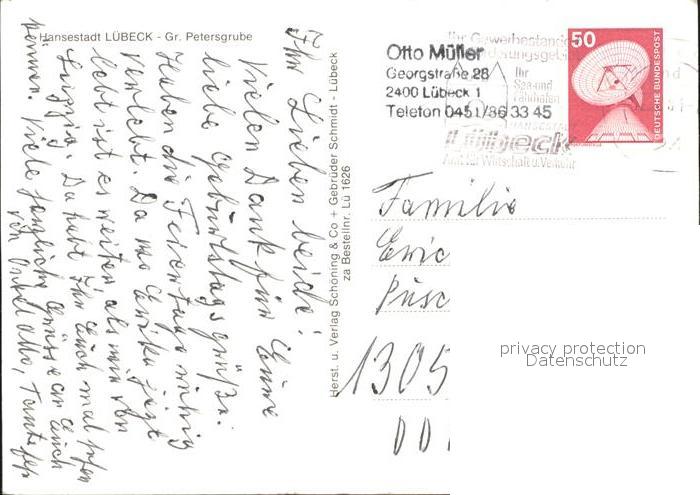 Hansestadt LÜBECK - Gr. Petersgrube
Ihr Lieben beide!
Vielen Dank für Eure
liebe Geburtstagsgrüße.
Haben die Feiertage ruhig
verlebt. Da wo Erika jetzt
lebt ist es weiter, als wie von
Leipzig. Da habt Ihr Euch mal sehen
können. Viele herzliche Grüsse an Euch
von Onkel Otto, Tante
Herst. u. Verlag Schöning & Co + Gebrüder Schmidt - Lübeck
za Bestellnr. Lü 1626
Otto Müller
Georgstraße 28
2400 Lübeck 1
Telefon 0451/86 33 45
Ihr
See-und
Fährhafen
Lübeck
Amt für Wirtschaft u. Verkehr
50
DEUTSCHE BUNDESPOST
Familie
Eric
Püsc
1305
DD
privacy protection
Datenschutz